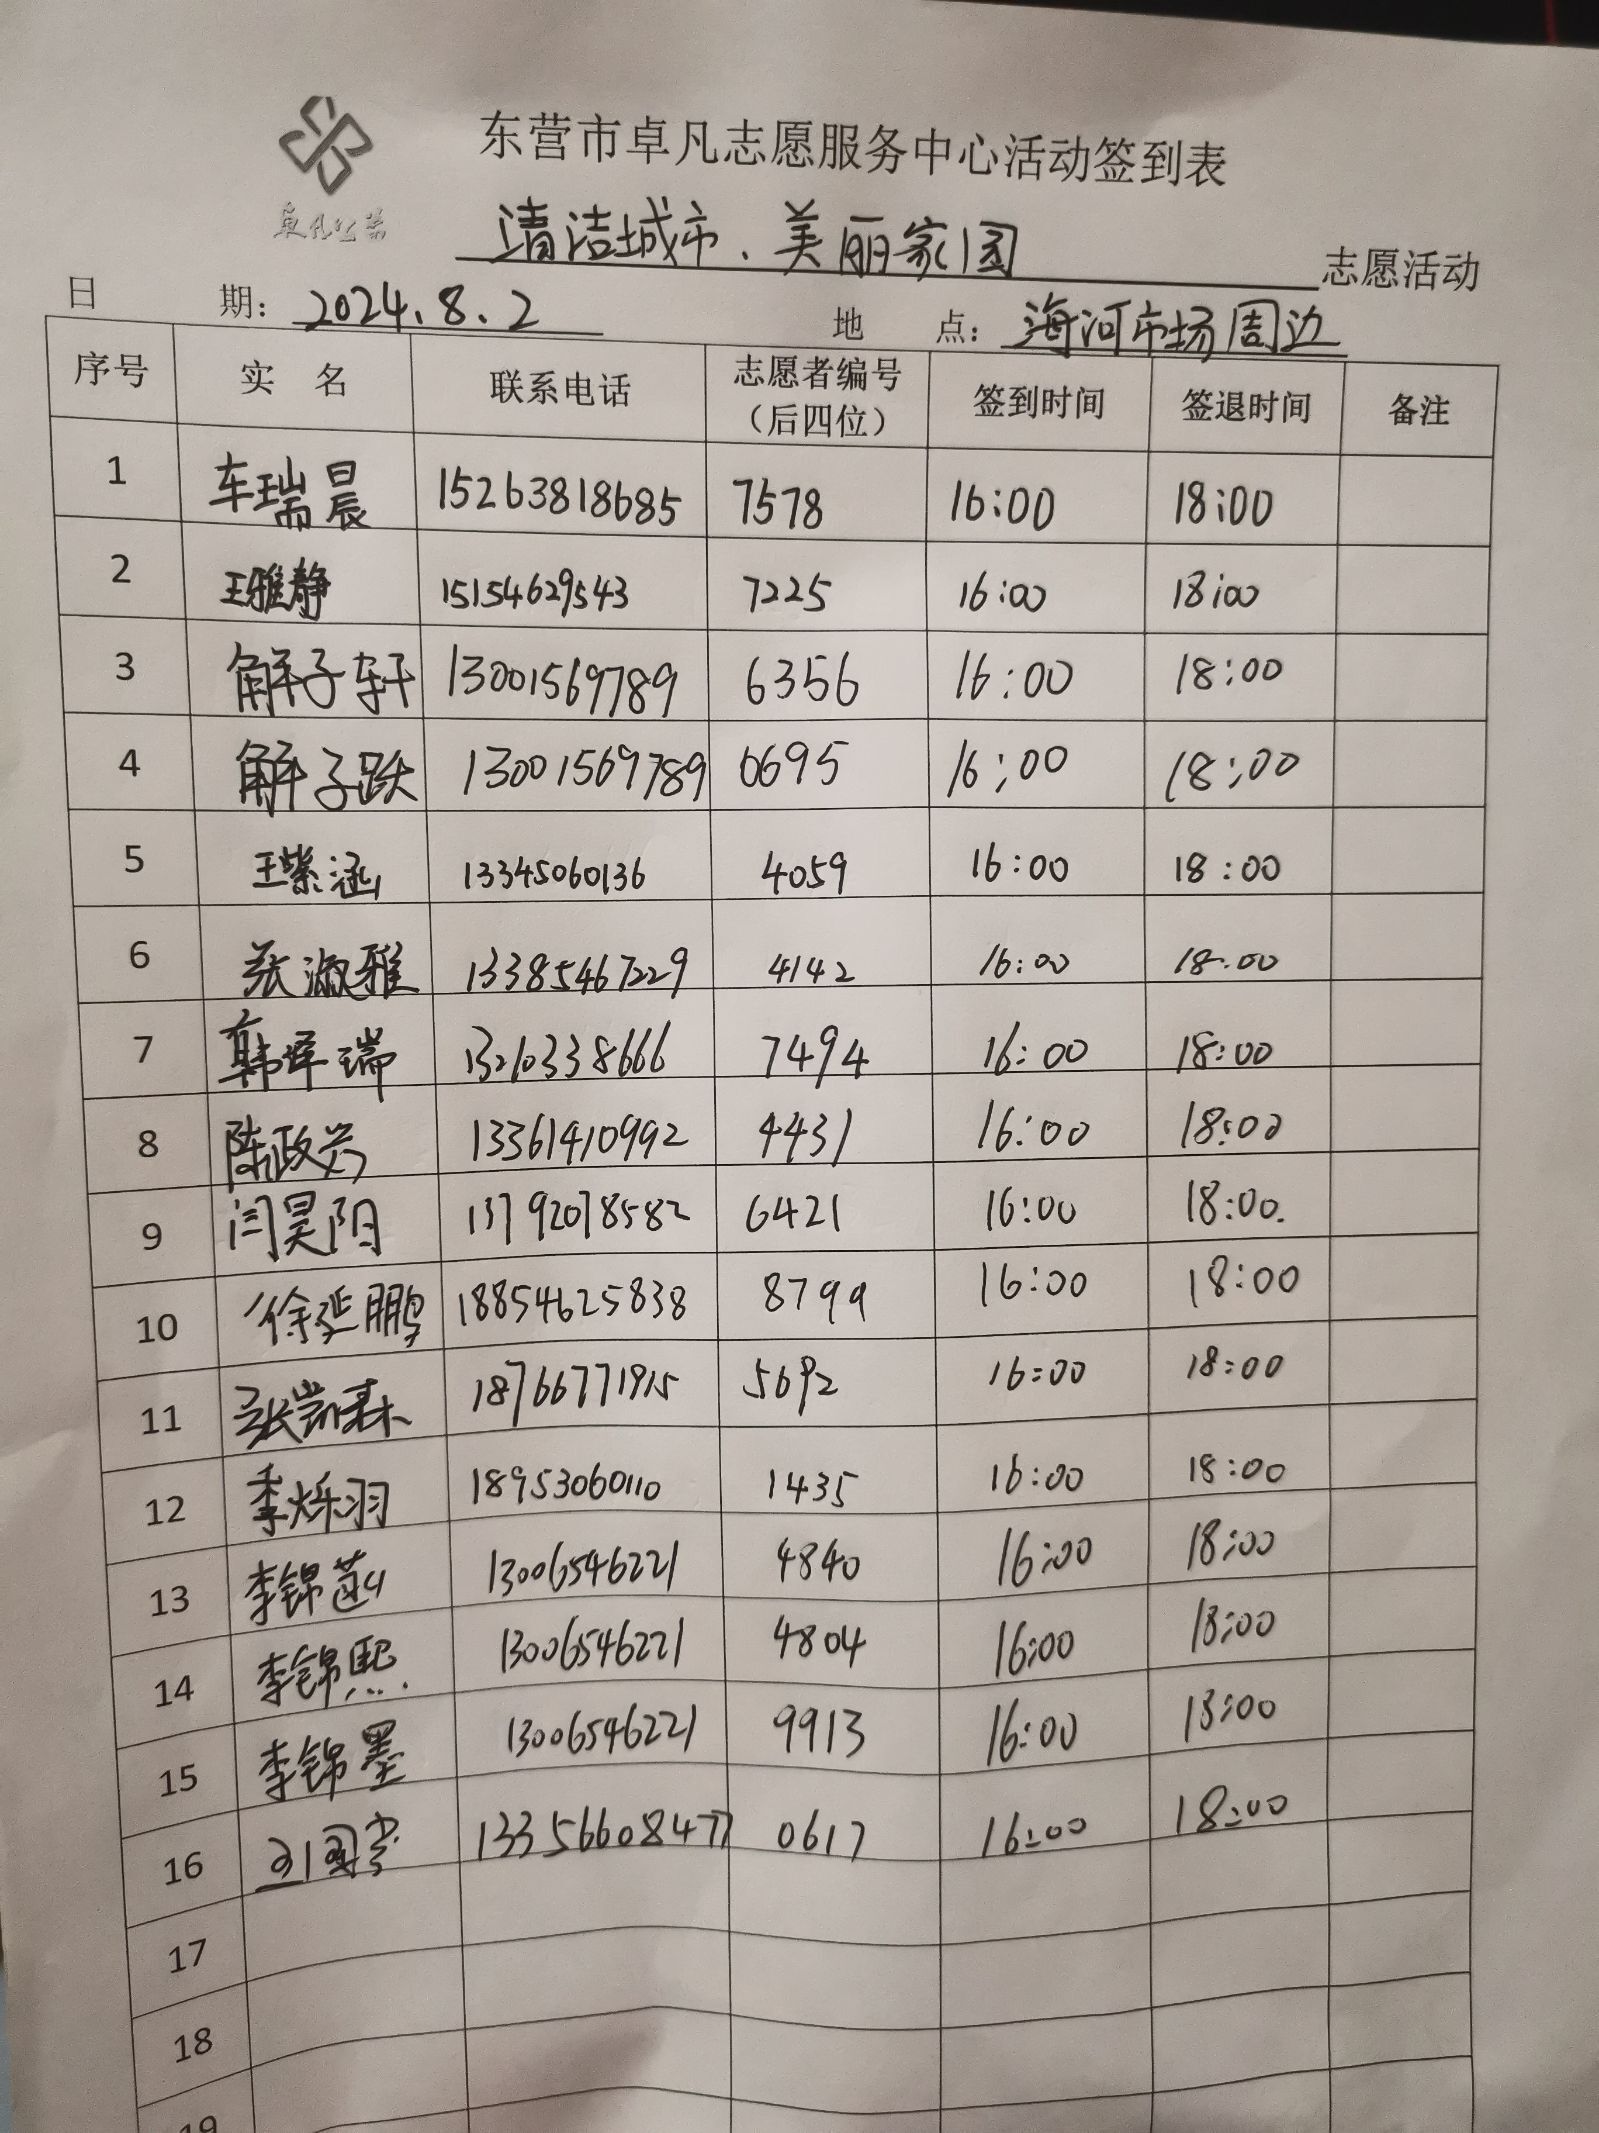 东营市卓凡志愿服务中心活动签到表
卓凡公益
清洁城市、美丽家园 志愿活动
日 期: 2024.8.2 地 点: 海河市场周边
序号 实 名 联系电话 志愿者编号（后四位） 签到时间 签退时间 备注
1 车瑞晨 15263818685 7578 16:00 18:00
2 王雅静 15154629543 7225 16:00 18:00
3 解子轩 13001569789 6356 16:00 18:00
4 解子跃 13001569789 0695 16:00 18:00
5 王紫涵 13345060136 4059 16:00 18:00
6 张淑雅 13385467229 4142 16:00 18:00
7 韩泽瑞 13210338666 7494 16:00 18:00
8 陈政兴 13361410992 4431 16:00 18:00
9 闫昊阳 13792078582 6421 16:00 18:00.
10 徐延鹏 18854625838 8799 16:00 18:00
11 张凯森 18766771915 5692 16:00 18:00
12 季烁羽 18953060110 1435 16:00 18:00
13 李锦菡 13006546221 4840 16:00 18:00
14 李锦熙 13006546221 4804 16:00 18:00
15 李锦墨 13006546221 9913 16:00 18:00
16 13356608477 0617 16:00 18:00
17
18
19